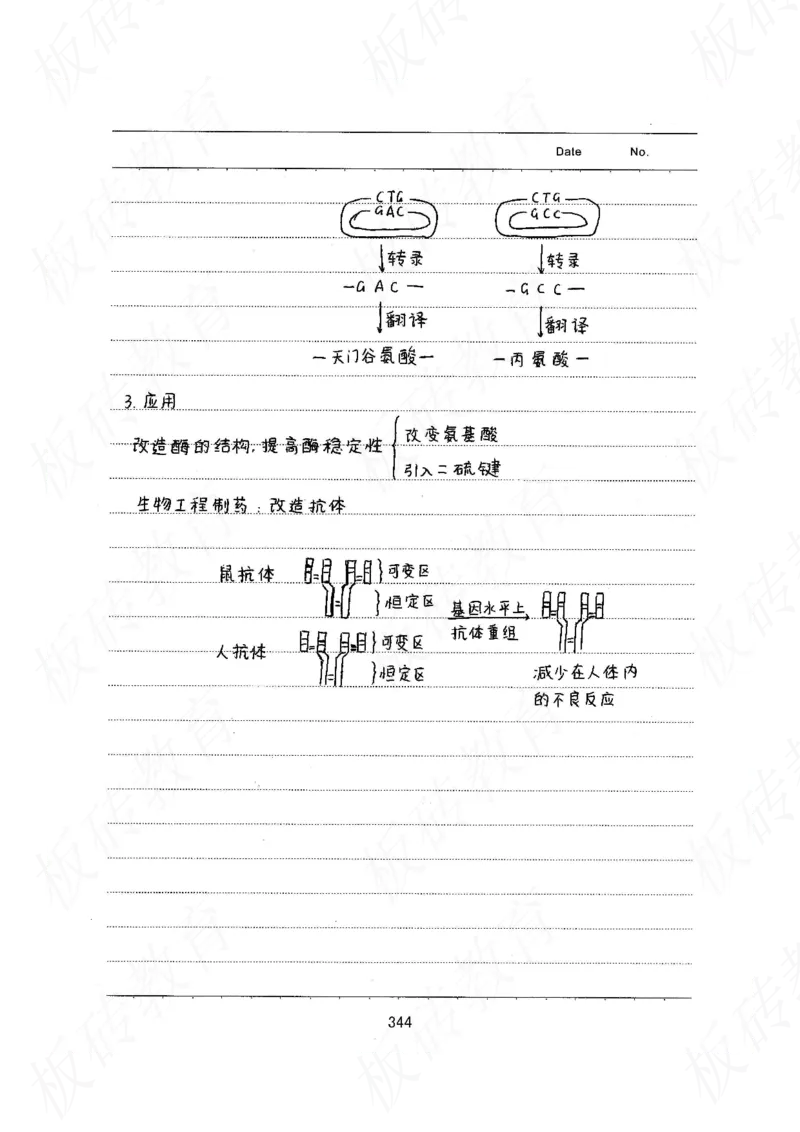 Date No.
CTG CTG
GAC GCC
转录 转录
—GAC— —GCC—
翻译 翻译
—天门谷氨酸— —丙氨酸—
3. 应用
改造酶的结构,提高酶稳定性 改变氨基酸
引入二硫键
生物工程制药:改造抗体
鼠抗体 可变区
恒定区 基因水平上
抗体重组
人抗体 可变区
恒定区 减少在人体内
的不良反应
344
板砖教育